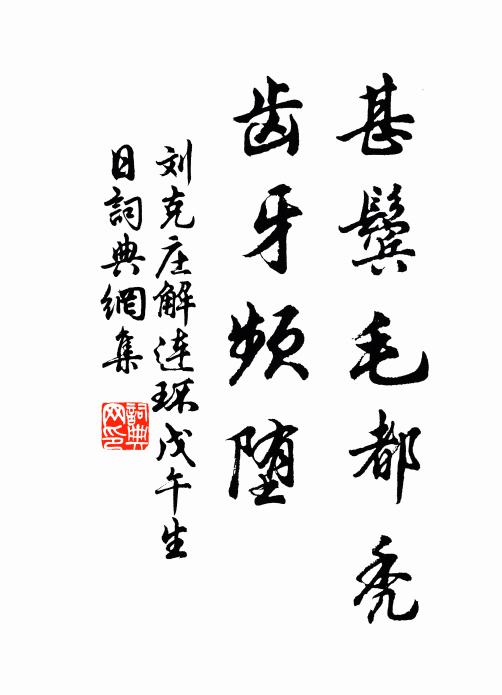 甚鬓毛都秃
齿牙频堕
刘克庄解连环戊午生
日詞典網集
詞典
网印